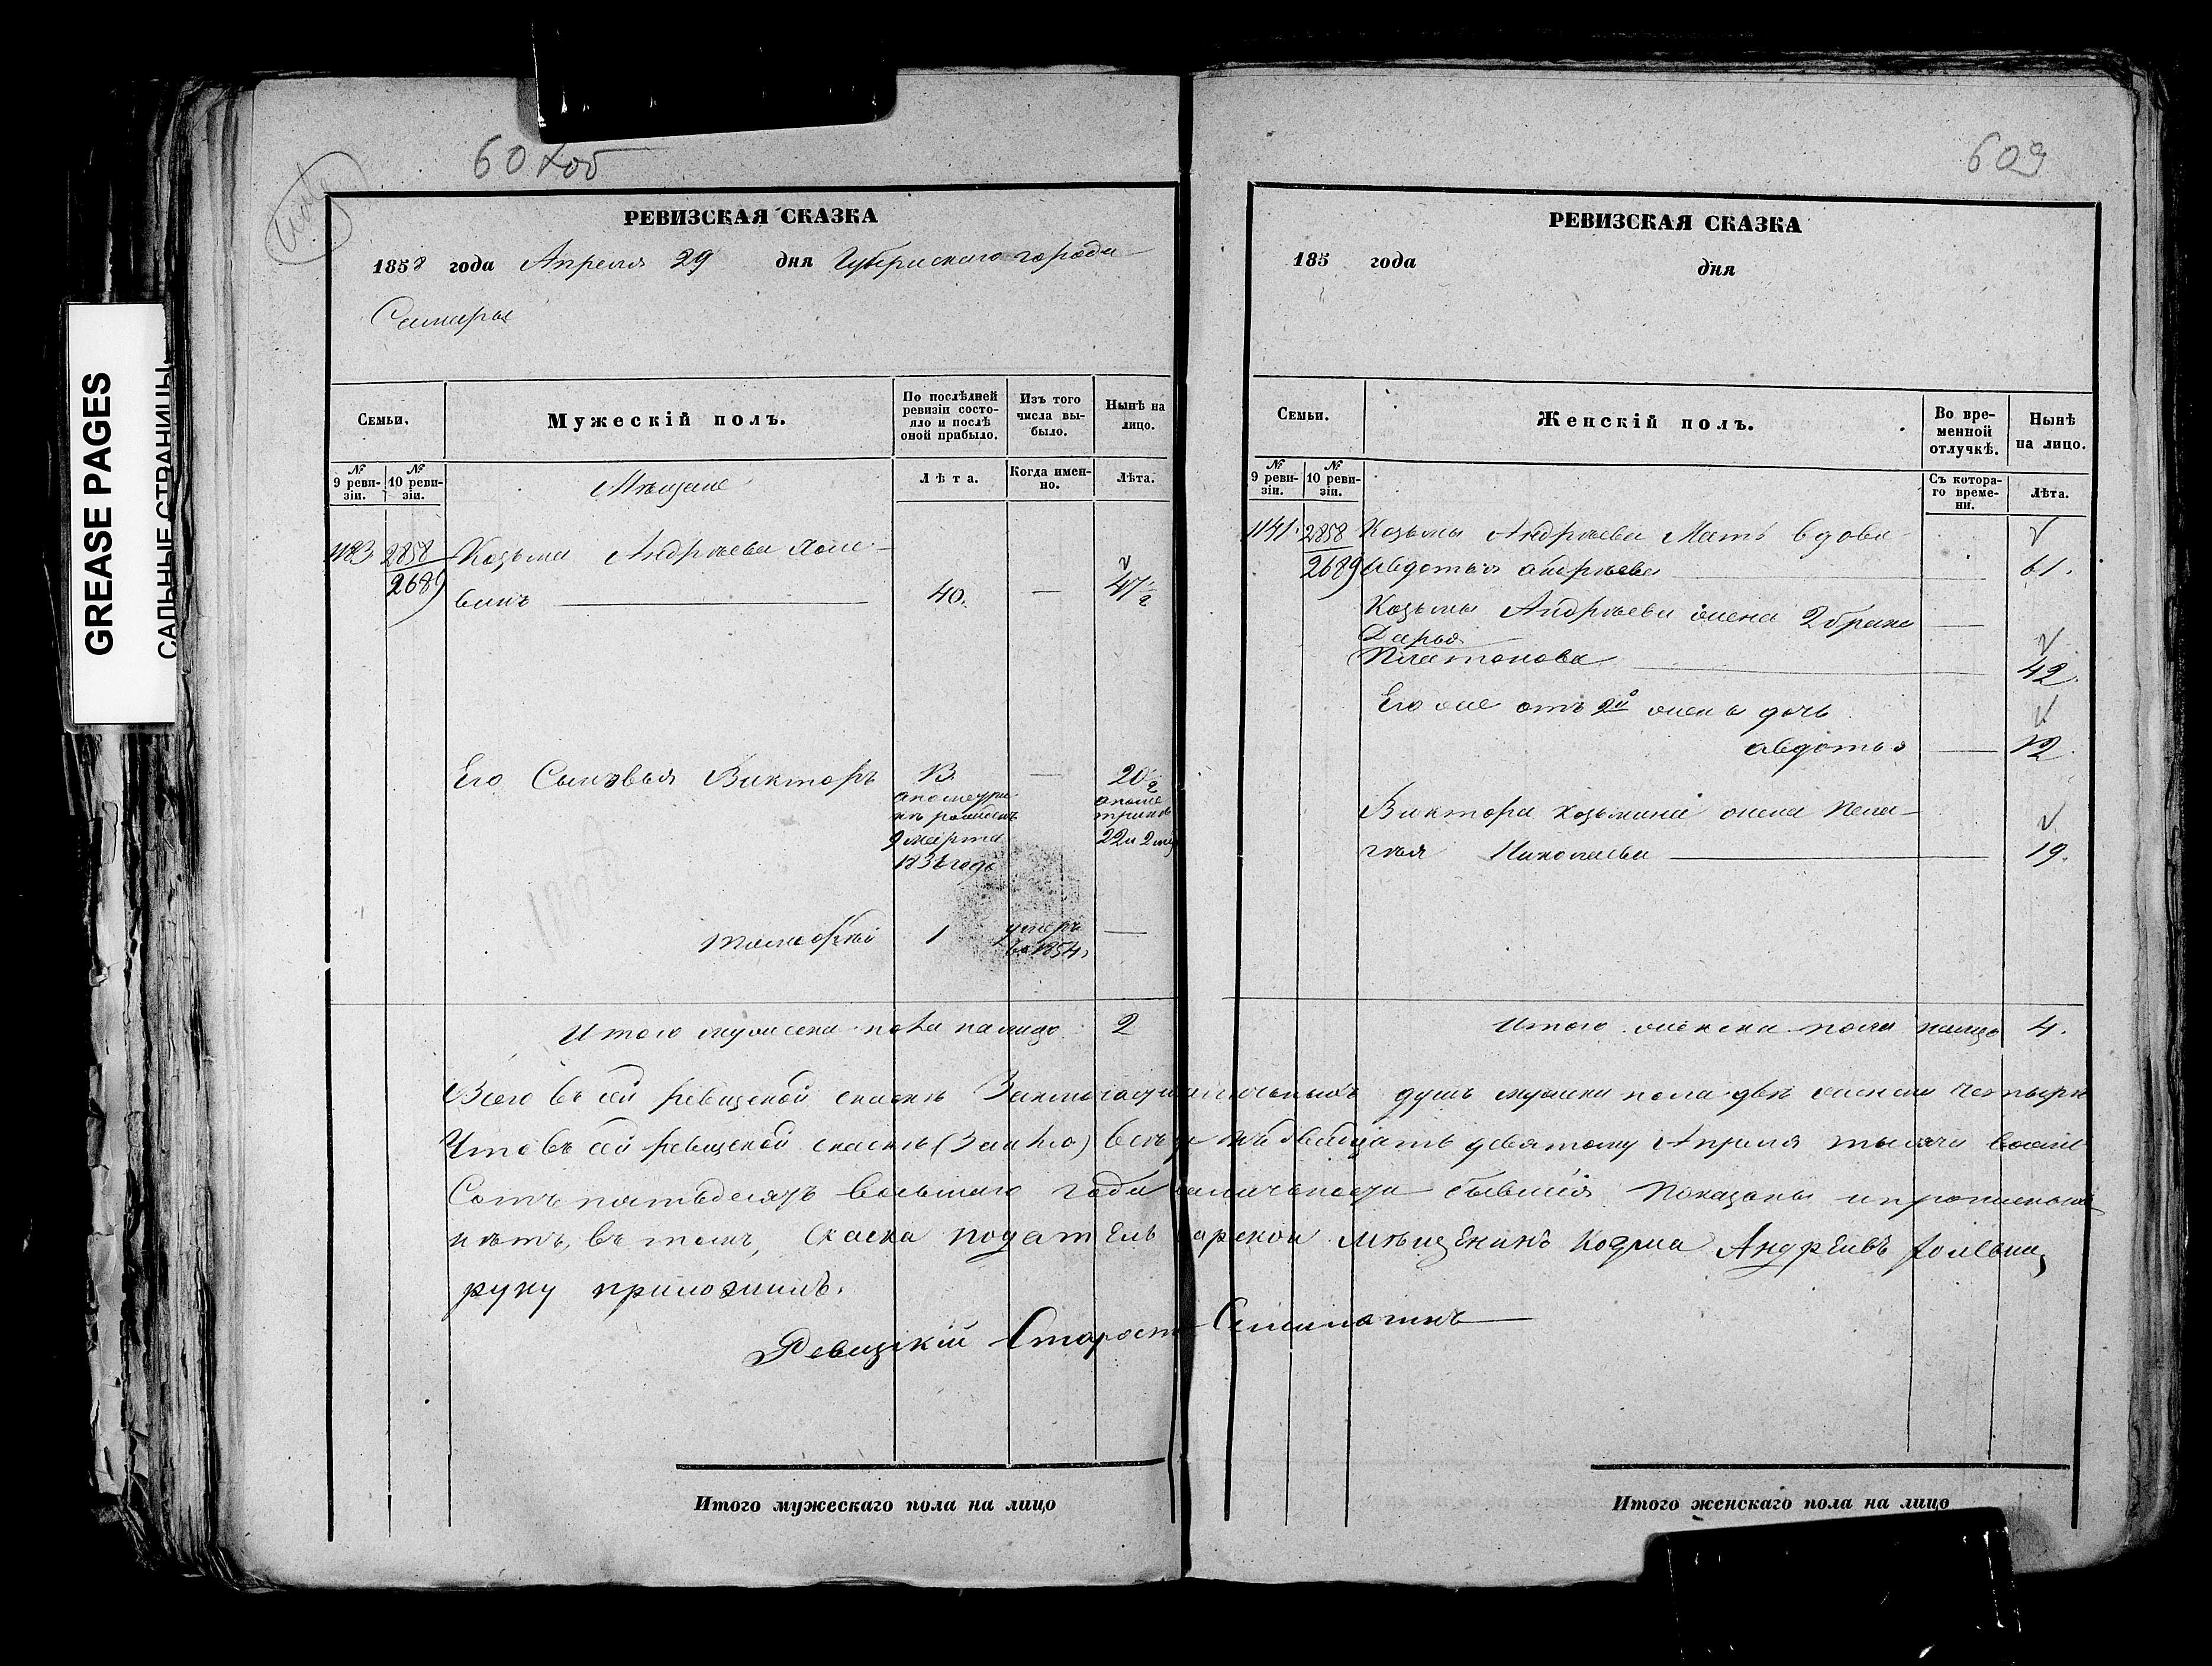 GREASE PAGES
САЛЬНЫЕ СТРАНИЦЫ
608 об
РЕВИЗСКАЯ СКАЗКА
1858 года Апреля 29 дня Губернскаго города
Самары
Семьи.
Мужескій полъ.
По послѣдней ревизіи состояло и послѣ оной прибыло.
Изъ того числа выбыло.
Нынѣ на лицо.
№ 9 ревизіи.
№ 10 ревизіи.
Мѣщане
Лѣта.
Когда именно.
Лѣта.
1183 2858 Козьма Андреевъ
2689 40. — 47½
Его Сыновья Викторъ 13 — 20½
а по метрикѣ
9 марта
22 и 2
183 года
1 умеръ —
въ 1854
Итого мужеска пола налицо 2
609
РЕВИЗСКАЯ СКАЗКА
185 года дня
Семьи.
Женскій полъ.
Во временной отлучкѣ.
Нынѣ на лицо.
№ 9 ревизіи.
№ 10 ревизіи.
Съ котораго времени.
Лѣта.
1141. 2858 Козьмы Андреева Мать вдова
2689 Авдотья 61.
Козьмы Андреева жена 2 брака
Дарья
Платонова 42.
Его же отъ 2й жены дочь
Авдотья 12.
Виктора Козьмина жена Пела-
гея Николаева 19.
Итого женска пола налицо 4.
Всего въ сей ревизской сказкѣ Заключается наличныхъ душъ мужска пола двѣ женска четыре
Что въ сей ревизской сказкѣ всѣ къ двадцать девятому Апреля тысяча восемь
Сотъ пятьдесятъ восьмаго года въ наличности бывшія показаны и прописныхъ
нѣтъ, въ томъ, Скаска податель Самарской мѣщенинъ Козма Андреевъ
руку приложилъ.
Ревизкій Староста
Итого мужескаго пола на лицо
Итого женскаго пола на лицо